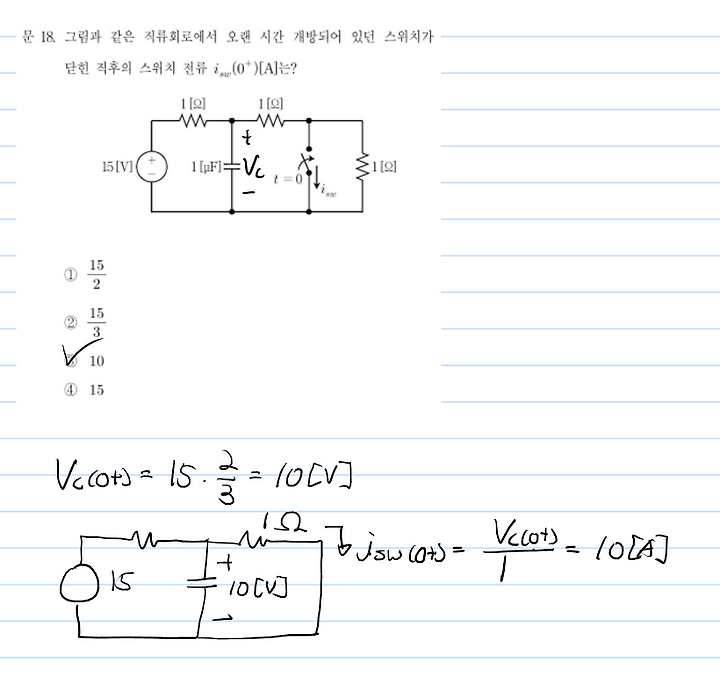 문 18. 그림과 같은 직류회로에서 오랜 시간 개방되어 있던 스위치가
닫힌 직후의 스위치 전류 i_sw(0⁺)[A]는?
1[Ω] 1[Ω]
15[V] + − 1[μF] + Vc − t=0 i_sw 1[Ω]
① 15/2
② 15/3
10
④ 15
Vc(0+) = 15 · 2/3 = 10[V]
1Ω
15 + 10[V] − isw(0+) = Vc(0+)/1 = 10[A]